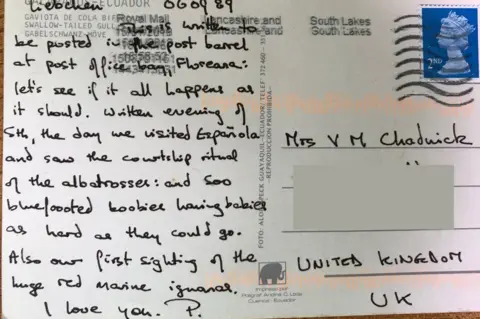 060989
GAVIOTA DE COLA
SWALLOW-TAILED GULL
GABELSCHWANZ MÖVE
Royal Mail
Lancashire and
South Lakes
Lancashire and
South Lakes
2ND
This is written to
be posted in the post barrel
at post office bay Floreana:
let's see if it all happens as
it should. Written evening of
5th, the day we visited Española
and saw the courtship ritual
of the albatrosses: and 500
bluefooted boobies having babies
as hard as they could go.
Also our first sighting of the
huge red marine iguanas.
I love you. P.
Mrs V M Chadwick
UNITED KINGDOM
UK
GUAYAQUIL, ECUADOR/ TELEF 372460
-REPRODUCCION PROHIBIDA-
Impreso por
Cuenca - Ecuador